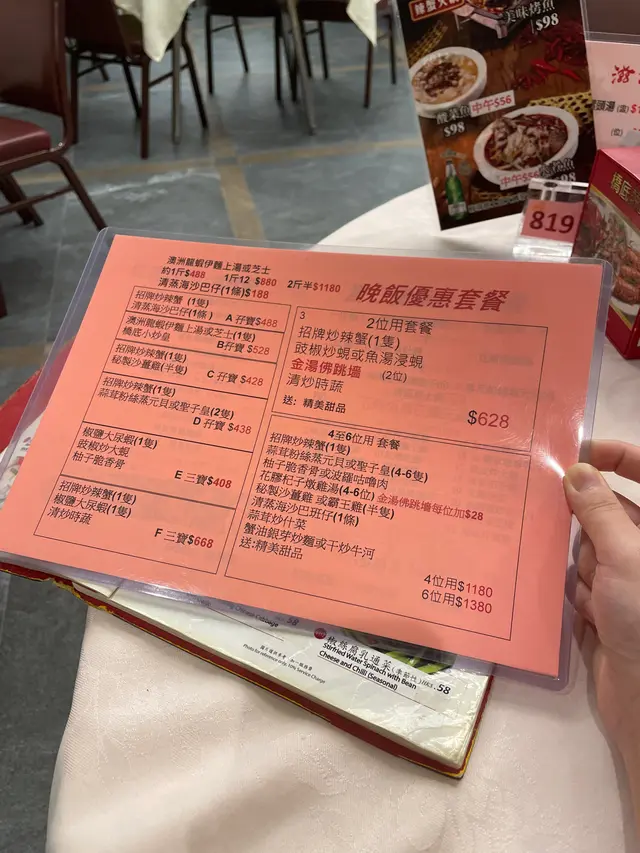 美味烤魚
$98
酸菜魚
中午$56
$98
中午$56
819
澳洲龍蝦伊麵上湯或芝士
約1斤$488 1斤12 $880 2斤半$1180
清蒸海沙巴仔(1條)$188
晚飯優惠套餐
招牌炒辣蟹 (1隻)
清蒸海沙巴仔(1條) A 孖寶$488
澳洲龍蝦伊麵上湯或芝士(1隻)
橋底小炒皇 B孖寶 $528
招牌炒辣蟹(1隻)
秘製沙薑雞(半隻) C 孖寶 $428
招牌炒辣蟹(1隻)
蒜茸粉絲蒸元貝或聖子皇(2隻)
D 孖寶 $438
椒鹽大尿蝦(1隻)
豉椒炒大蜆
柚子脆香骨
E 三寶$408
招牌炒辣蟹(1隻)
椒鹽大尿蝦(1隻)
清炒時蔬
F 三寶$668
3
2位用套餐
招牌炒辣蟹(1隻)
豉椒炒蜆或魚湯浸蜆
金湯佛跳墻 (2位)
清炒時蔬
送: 精美甜品
$628
4至6位用 套餐
招牌炒辣蟹(1隻)
蒜茸粉絲蒸元貝或聖子皇(4-6隻)
柚子脆香骨或波羅咕嚕肉
花膠杞子燉雞湯(4-6位) 金湯佛跳墻每位加$28
秘製沙薑雞 或霸王雞(半隻)
清蒸海沙巴班仔(1條)
蒜茸炒什菜
蟹油銀芽炒麵或干炒牛河
送:精美甜品
4位用$1180
6位用$1380
Cabbage 58
椒絲腐乳通菜(季節性)
Stirfried Water Spinach with Bean
Cheese and Chilli (Seasonal) 58
Photo for reference only, 10% Service Charge